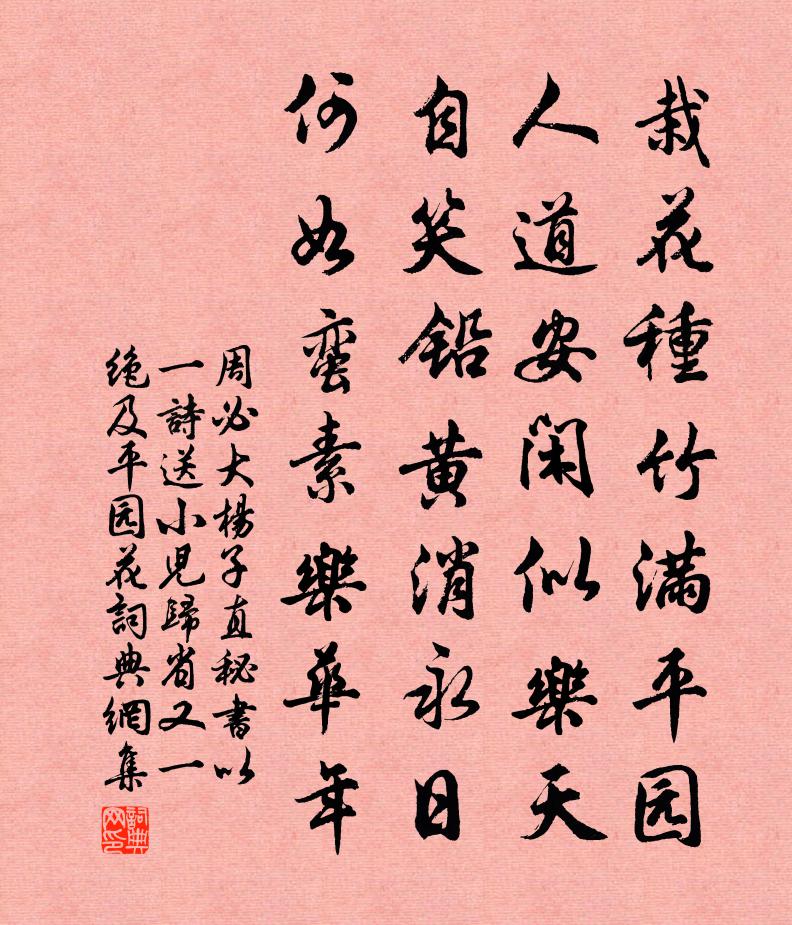 栽花種竹滿平园
人道安闲似樂天
自笑铅黄消永日
何如蛮素樂華年
周必大楊子直秘書以
一詩送小兒歸省又一
绝及平园花詞典網集
詞典网印